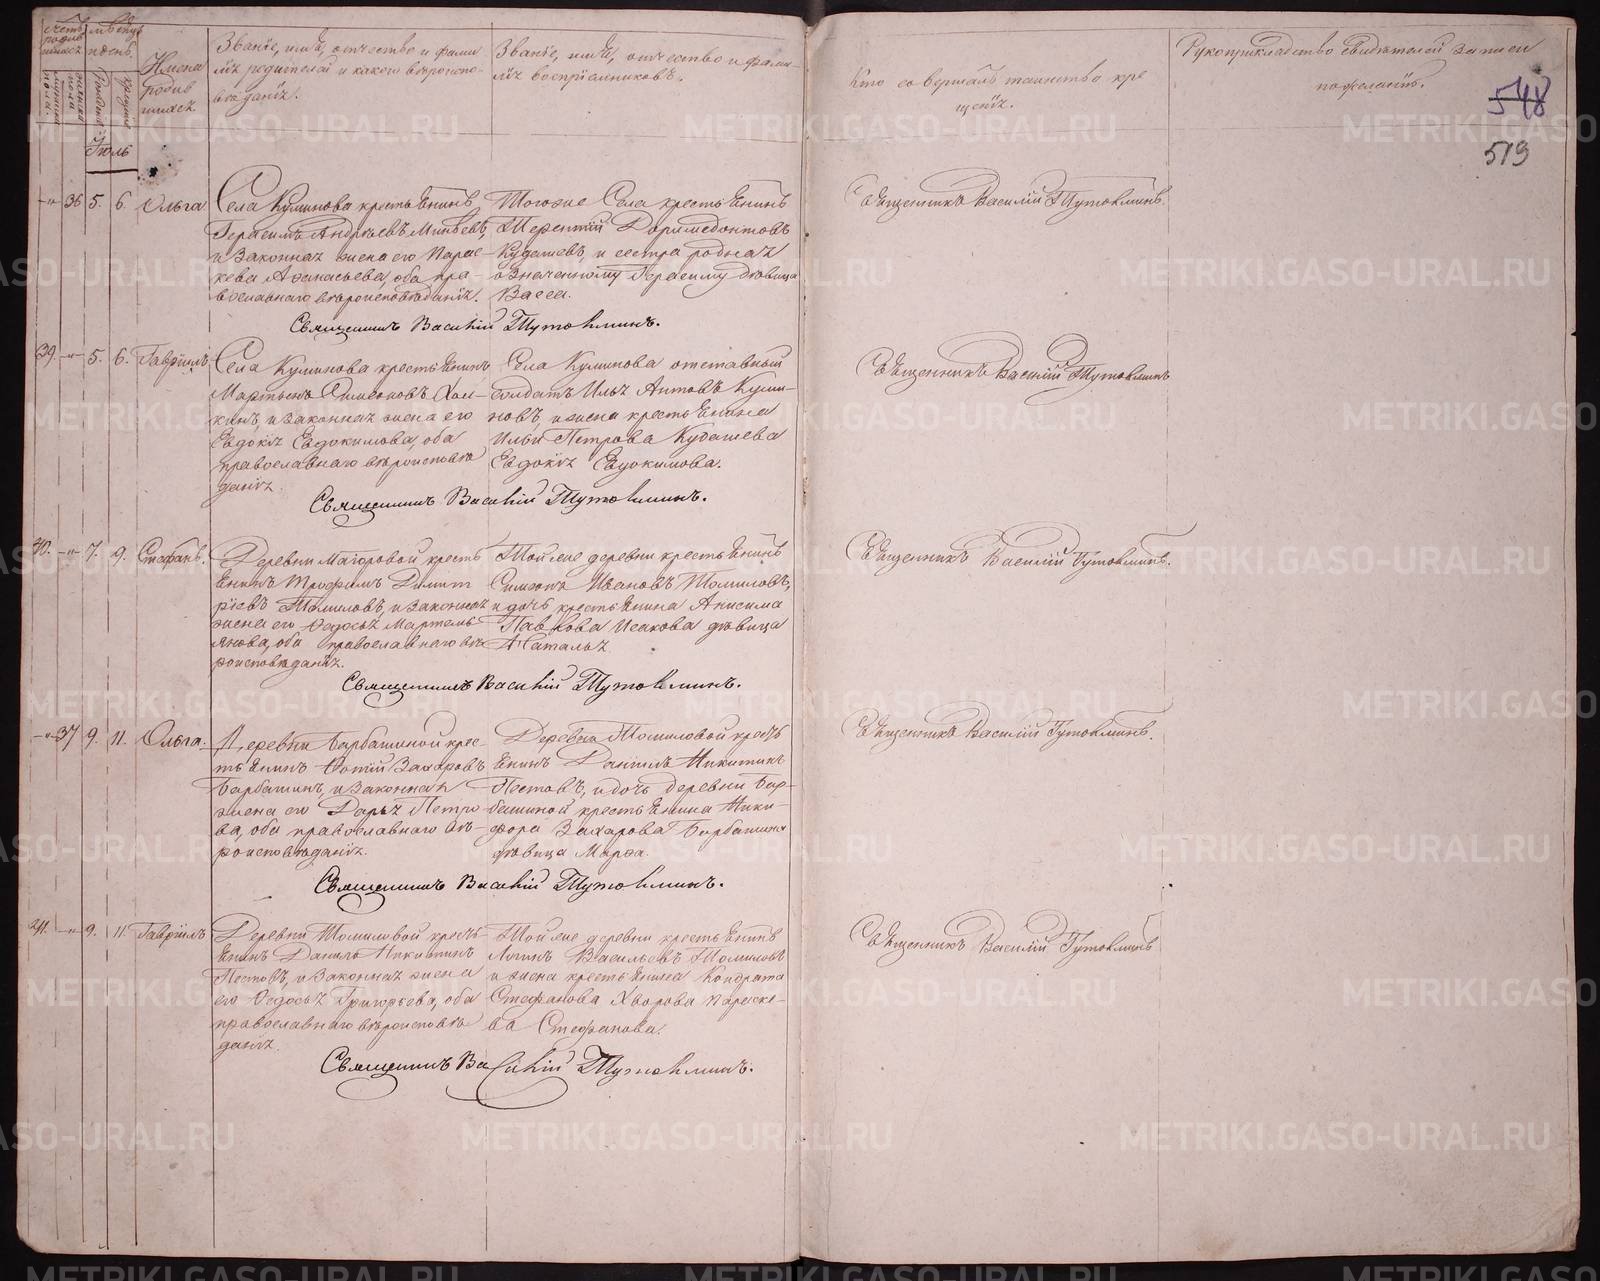 Счетъ родив шихся
мужеска пола.
женска пола
мѣсяцъ и день.
рожденія
крещенія
Имена родив шихся
Званіе, имя, отчество и фами
лія родителей и какого вѣроиспо-
вѣданія.
Званіе, имя, отчество и фами-
лія воспріемниковъ.
Кто совершалъ таинство кре
щенія.
Рукоприкладство свидѣтелей записи
по желанію.
548
519
Іюль
-"- 36 5. 6. Ольга
Села Куликова крестьянинъ
Герасимъ Андреевъ Минѣевъ,
и законная жена его Парас-
кева Аѳанасьева, оба пра-
вославнаго вѣроисповѣданія.
Тогоже Села крестьянинъ
Терентій Доримедонтовъ
Кудашевъ, и сестра родная
означенному Герасиму дѣвица
Васса.
Священникъ Василій Тутолминъ.
Священникъ Василій Тутолминъ.
39. -"- 5. 6. Гавріилъ
Села Куликова крестьянинъ
Мартынъ Симеоновъ
и законная жена его
Евдокія Евдокимова, оба
православнаго вѣроисповѣ
данія.
Села Куликова отставный
солдатъ Илья Кули-
ковъ, и жена крестьянина
Ильи Петрова Кудашева
Евдокія Евдокимова.
Священникъ Василій Тутолминъ
Священникъ Василій Тутолминъ.
40. -"- 7. 9. Стефанъ.
Деревни Маіоровой кресть
янинъ Трофимъ Димит
ріевъ Томиловъ, и законная
жена его Ѳедосья Мартемь
янова, оба православнаго вѣ
роисповѣданія.
Тойже деревни крестьянинъ
Симеонъ Ивановъ Томиловъ,
и дочь крестьянина Анисима
Павлова Исакова дѣвица
Наталья
Священникъ Василій Тутолминъ.
Священникъ Василій Тутолминъ.
-"- 37 9. 11. Ольга.
Деревни Барбашиной крес-
тьянинъ Фотій Захаровъ
Барбашинъ, и законная
жена его Дарья Петро
ва, оба православнаго вѣ-
роисповѣданія.
Деревни Томиловой кресть
янинъ Данилъ Никитинъ
Пестовъ, и дочь деревни Бар-
башиной крестьянина Ники-
фора Захарова Барбашина
дѣвица Марѳа.
Священникъ Василій Тутолминъ.
Священникъ Василій Тутолминъ.
41. -"- 9. 11. Гавріилъ
Деревни Томиловой кресть-
янинъ Данилъ Никитинъ
Пестовъ, и законная жена
его Ѳедосья Григорьева, оба
православнаго вѣроисповѣ
данія.
Тойже деревни крестьянинъ
Логинъ Васильевъ Томиловъ
и жена крестьянина Кондрата
Стефанова Хворова Параске-
ва Стефанова.
Священникъ Василій Тутолминъ
Священникъ Василій Тутолминъ.